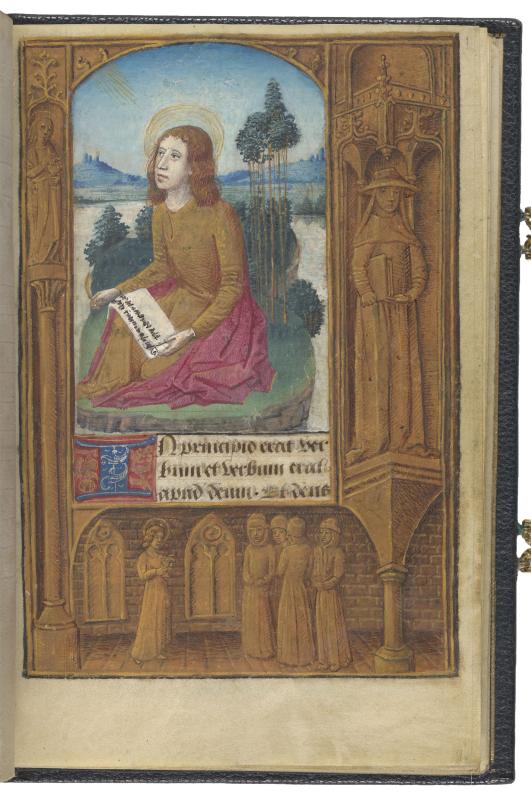 In principio erat ver
bum et verbum erat
apud deum. Et deus